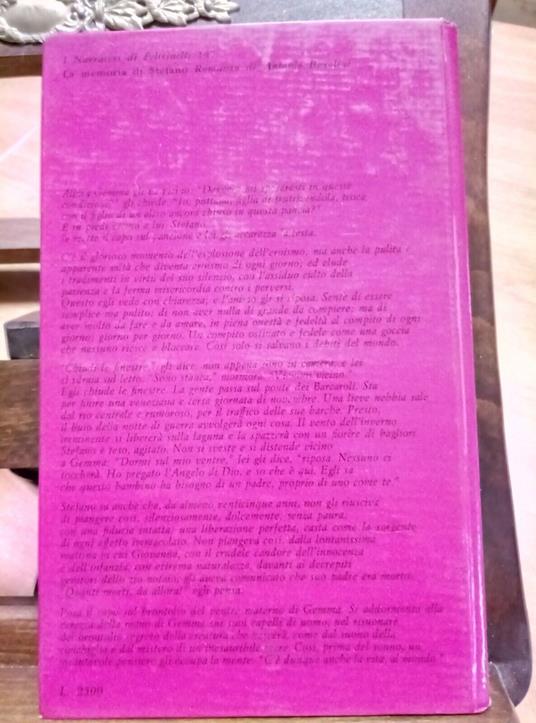 I Narratori di Feltrinelli
La memoria di Stefano Romanzo di
gli chiede. "Io, puttana, figlia di
con il figlio di un altro ancora chiuso in questa pancia?"
È in piedi a lui. Stefano
le mette il capo sul e lei gli accarezza la testa.
C'è il glorioso momento dell'esplosione dell'eroismo, ma anche la pulita e
apparente viltà che diventa eroismo di ogni giorno; ed elude
i tradimenti in virtù del suo silenzio, con l'assiduo culto della
pazienza e la ferma misericordia contro i perversi.
Questo egli vede con chiarezza; e l'animo gli si riposa. Sente di essere
semplice ma pulito; di non aver nulla di grande da compiere; ma di
aver molto da fare e da amare, in piena onestà e fedeltà al compito di ogni
giorno; giorno per giorno. Un compito ostinato e fedele come una goccia
che nessuno riesce a bloccare. Così solo si salvano i debiti del mondo.
"Chiudi le finestre," gli dice, non appena sono in camera, e lei
si sdraia sul letto. "Sono stanca," mormora. vicino."
Egli chiude le finestre. La gente passa sul ponte dei Barcaroli. Sta
per finire una veneziana e tersa giornata di novembre. Una lieve nebbia sale
dal rio centrale e rumoroso, per il traffico delle sue barche. Presto,
il buio della notte di guerra avvolgerà ogni cosa. Il vento dell'inverno
imminente si libererà sulla laguna e la spazzerà con un fiorire di bagliori.
Stefano è teso, agitato. Non si sveste e si distende vicino
a Gemma: "Dormi sul mio ventre," lei gli dice, "riposa. Nessuno ci
toccherà. Ho pregato l'Angelo di Dio, e so che è qui. Egli sa
che questo bambino ha bisogno di un padre, proprio di uno come te."
Stefano sa anche che, da almeno venticinque anni, non gli riusciva
di piangere così, silenziosamente, dolcemente, senza paura,
con una fiducia intatta; una liberazione perfetta, casta come la sorgente
di ogni affetto immacolato. Non piangeva così, dalla lontanissima
mattina in cui Giovanna, con il crudele candore dell'innocenza
e dell'infanzia, con estrema naturalezza, davanti ai decrepiti
genitori dello zio notaio, gli aveva comunicato che suo padre era morto.
"Quanti morti, da allora!" egli pensa.
Posa il capo sul brontolio del ventre materno di Gemma. Si addormenta alla
carezza della mano di Gemma sui suoi capelli di uomo; nel risuonare
del brontolio segreto della creatura che nascerà, come dal suono della
conchiglia e dal mistero di un mare. Così, prima del sonno, un
pensiero gli occupa la mente: "C'è dunque anche la vita, al mondo."
L. 2500